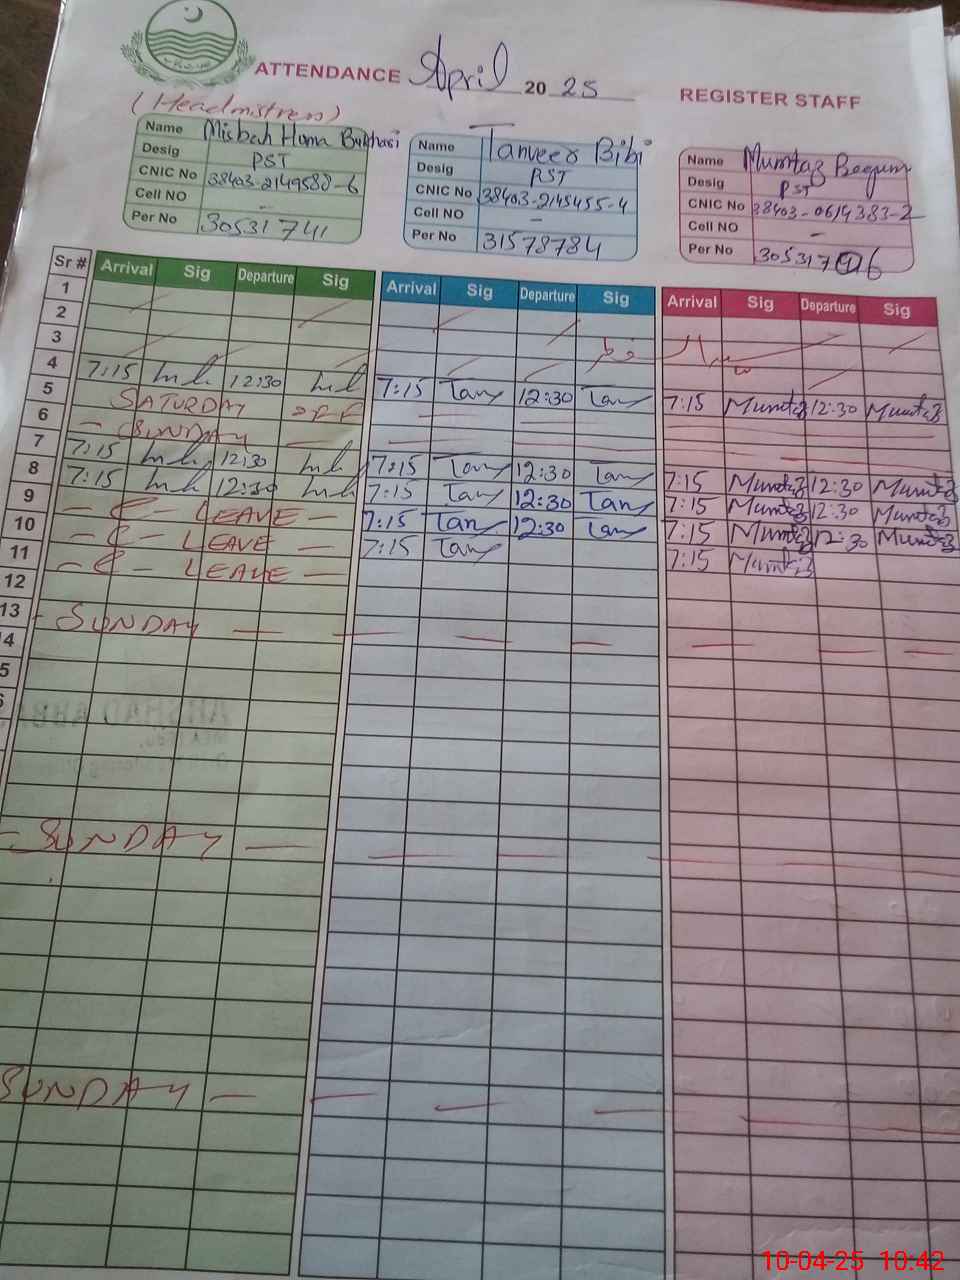 ATTENDANCE April 2025 REGISTER STAFF
(Headmistress)
Name Misbah Huma Bukhari
Desig PST
CNIC No 38403-2149588-6
Cell NO -
Per No 30531741
Name Tanveer Bibi
Desig PST
CNIC No 38403-2145455-4
Cell NO -
Per No 31578784
Name Mumtaz Begum
Desig PST
CNIC No 38403-0614383-2
Cell NO -
Per No
Sr # Arrival Sig Departure Sig Arrival Sig Departure Sig Arrival Sig Departure Sig
1
2
3
4 7:15 12:30 7:15 Tan 12:30 Tan 7:15 Mumtaz 12:30 Mumtaz
5 SATURDAY OFF
6 - SUNDAY -
7 7:15 12:30 7:15 Tan 12:30 Tan 7:15 Mumtaz 12:30 Mumtaz
8 7:15 12:30 7:15 Tan 12:30 Tan 7:15 Mumtaz 12:30 Mumtaz
9 LEAVE - 7:15 Tan 12:30 Tan 7:15 Mumtaz 12:30 Mumtaz
10 LEAVE - 7:15 Tan 7:15 Mumtaz
11 LEAVE -
12
13 - SUNDAY -
14
5
6
- SUNDAY -
SUNDAY -
10-04-25 10:42